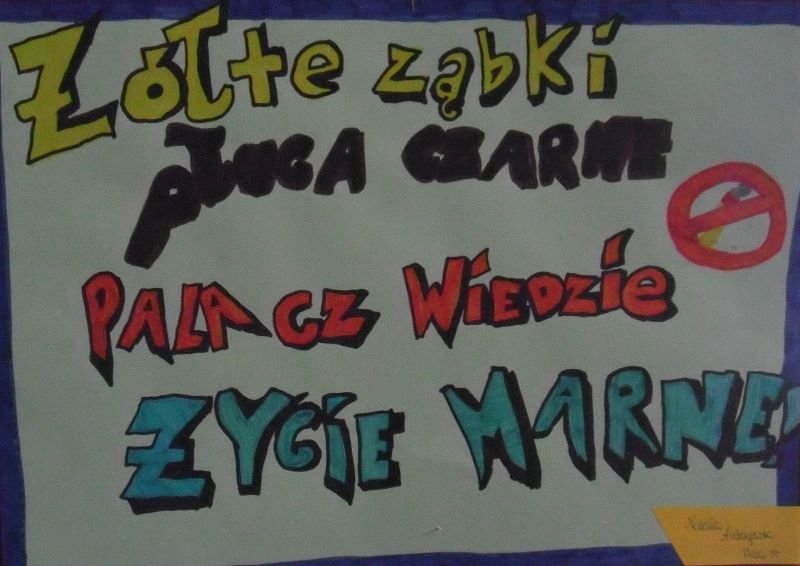 Żółte ząbki
płuca CZARNE
PALACZ WIEDZIE
ŻYCIE MARNE!
Natalia